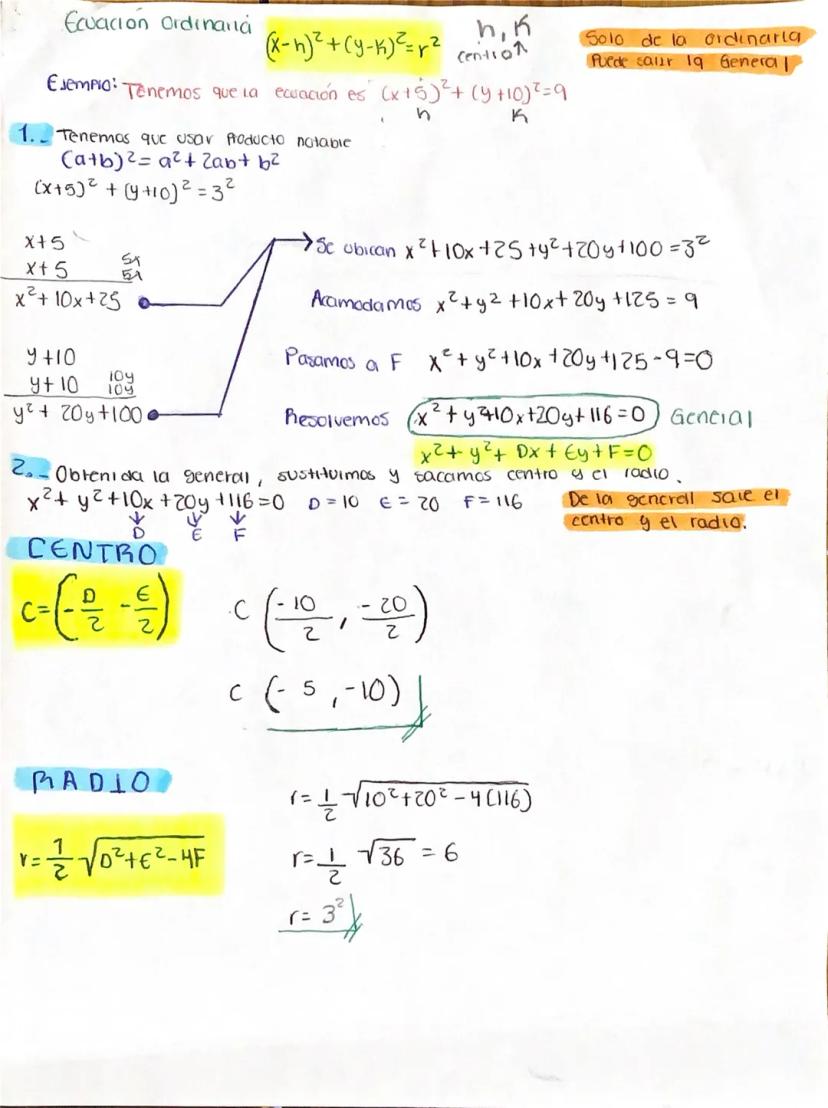 Ecuación Ordinaria (x-h)²+(y-k)²=r² h, k centro↑
Solo de la ordinaria
Puede salir la General
Ejemplo: Tenemos que la ecuación es (x+5)²+(y+10)²=9
h k
1.- Tenemos que usar Producto notable
(a+b)²=a²+2ab+b²
(x+5)²+(y+10)²=3²
x+5
x+5 5x
5x
x²+10x+25
y+10
y+10 10y
10y
y²+20y+100
Se ubican x²+10x+25+y²+20y+100=3²
Acomodamos x²+y²+10x+20y+125=9
Pasamos a F x²+y²+10x+20y+125-9=0
Resolvemos x²+y²+10x+20y+116=0 General
x²+y²+Dx+Ey+F=0
2.- Obtenida la general, sustituimos y sacamos centro y el radio.
x²+y²+10x+20y+116=0 D=10 E=20 F=116
D E F
De la generall sale el
centro y el radio.
CENTRO
C=(-D/2 -E/2) C(-10/2, -20/2)
C (-5,-10)
RADIO
r=1/2 √D²+E²-4F
r=1/2 √10²+20²-4(116)
r=1/2 √36 = 6
r= 3²